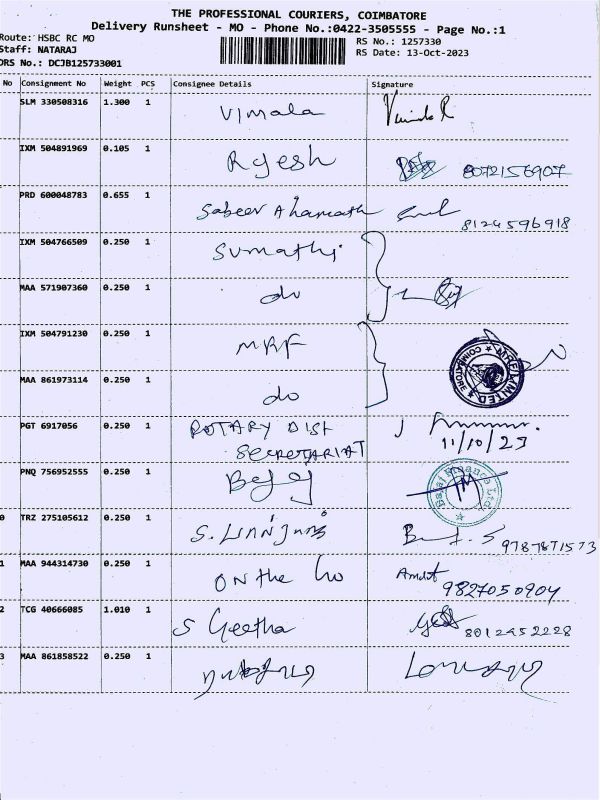 THE PROFESSIONAL COURIERS, COIMBATORE
Delivery Runsheet - MO - Phone No.:0422-3505555 - Page No.:1
Route: HSBC RC MO
RS No.: 1257330
Staff: NATARAJ
RS Date: 13-Oct-2023
DRS No.: DCJB125733001
No Consignment No Weight PCS Consignee Details Signature
SLM 330508316 1.300 1 Vimala
IXM 504891969 0.105 1 Rgesh 8072156907
PRD 600048783 0.655 1 Sabeer 8124596918
IXM 504766509 0.250 1 Sumathi
MAA 571907360 0.250 1 do
IXM 504791230 0.250 1 MRF
MRF LIMITED COIMBATORE
MAA 861973114 0.250 1 do
PGT 6917056 0.250 1 ROTARY DIST
SECRETARIAT 11/10/23
PNQ 756952555 0.250 1
Bajaj Finance Ltd
0 TRZ 275105612 0.250 1 S. 9787871573
1 MAA 944314730 0.250 1 on the
9827050904
2 TCG 40666085 1.010 1 S Geetha 8012452228
3 MAA 861858522 0.250 1